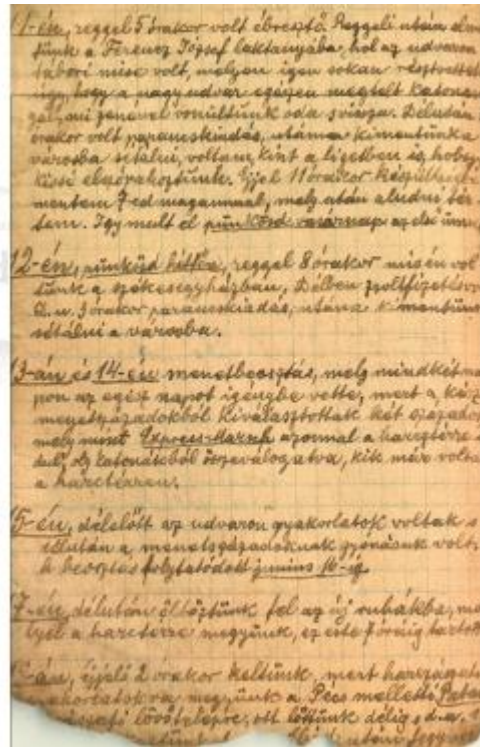 11-én, reggel 5 órakor volt ébresztő. Reggeli után elme
tünk a Ferencz József laktanyába, hol az udvaron
tábori mise volt, melyen igen sokan résztvettek
úgy, hogy a nagy udvar egészen megtelt katona
zenével vonultunk oda s vissza. Délután
órakor volt parancskiadás, utána kimentünk a
városba sétálni, voltam kint a ligetben is, hol
kissé elszórakoztunk. Éjjel 11 órakor
mentem 7-ed magammal, mely után aludni tér
tem. Így mult el pünkösd vasárnap az első ünne
12-én, pünkösd hétfőn, reggel 8 órakor misén vol
tünk a székesegyházban, Délben zsoldfizetés
D. u. 3 órakor parancskiadás, utána kimentünk
sétálni a városba.
13-án és 14-én menetbeosztás, mely mindkét na
pon az egész napot igénybe vette, mert a
menetszázadokból kiválasztottak két századot
mely mint Express-Marsch azonnal a harcztérre
dul, oly katonákból összeválogatva, kik már volta
a harcztéren.
15-én, délelőtt az udvaron gyakorlatok voltak s
délután a menetszázadoknak gyónásuk volt,
A beosztás folytatódott junius 16-ig.
17-én, délután öltöztünk fel az új ruhákba, me
lyel a harcztérre megyünk, ez este 7 óráig tartott
án, éjjeli 2 órakor keltünk, mert harcszerű
gyakorlatokra megyünk a Pécs melletti
lövőtérre, ott lőttünk délig s d. u.